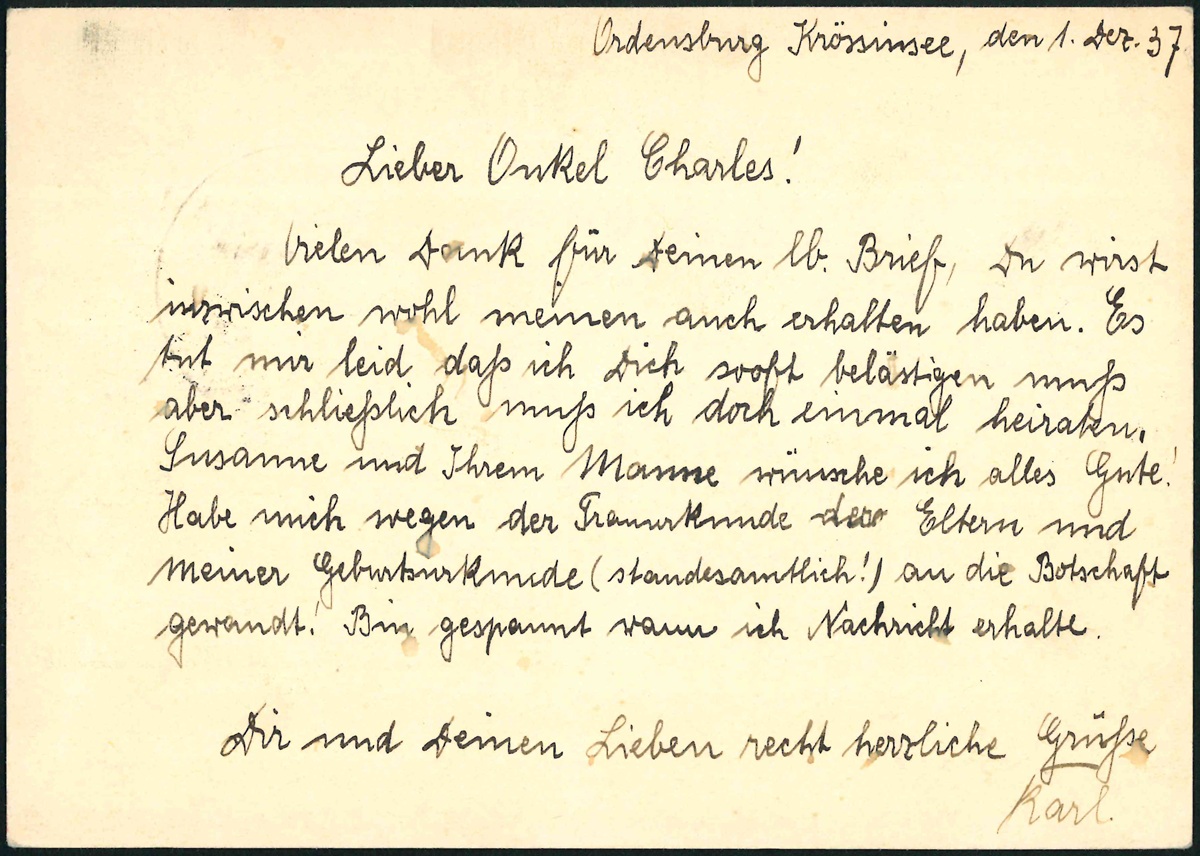 Ordensburg Krössinsee, den 1. Dez. 37
Lieber Onkel Charles!
Vielen Dank für Deinen lb. Brief, Du wirst
inzwischen wohl meinen auch erhalten haben. Es
tut mir leid daß ich Dich sooft belästigen muß
aber schließlich muß ich doch einmal heiraten.
Susanne und Ihrem Manne wünsche ich alles Gute!
Habe mich wegen der Trauurkunde der Eltern und
meiner Geburtsurkunde (standesamtlich!) an die Botschaft
gewandt! Bin gespannt wann ich Nachricht erhalte.
Dir und Deinen Lieben recht herzliche Grüße
Karl.